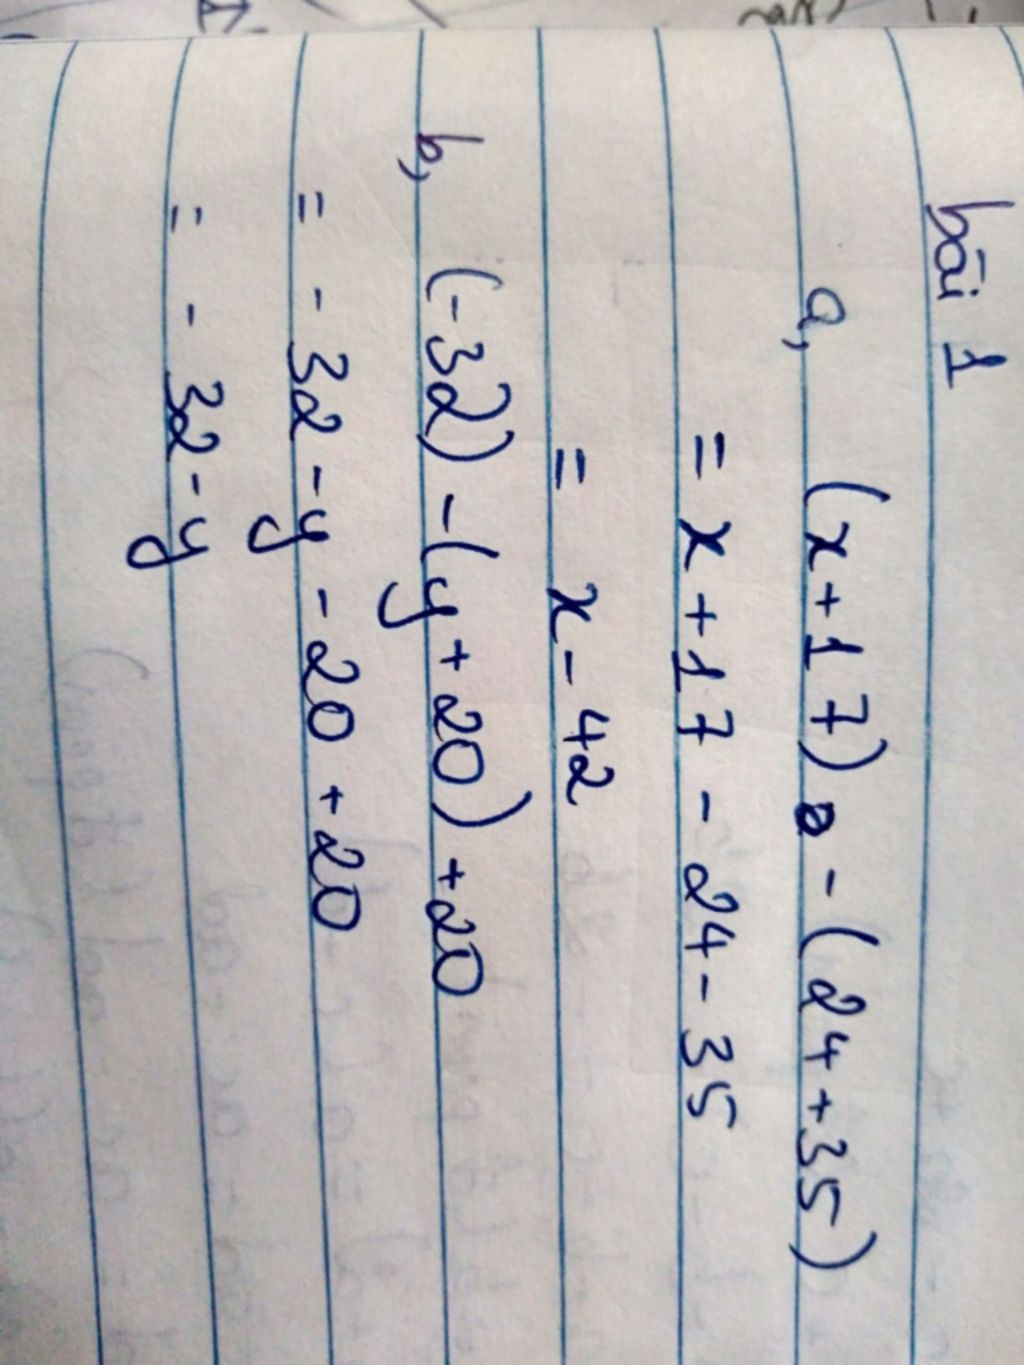 bài 1
a, (x+17) - (24+35)
= x+17 - 24 - 35
= x - 42
b, (-32) - (y+20) +20
= - 32 - y - 20 + 20
= - 32 - y